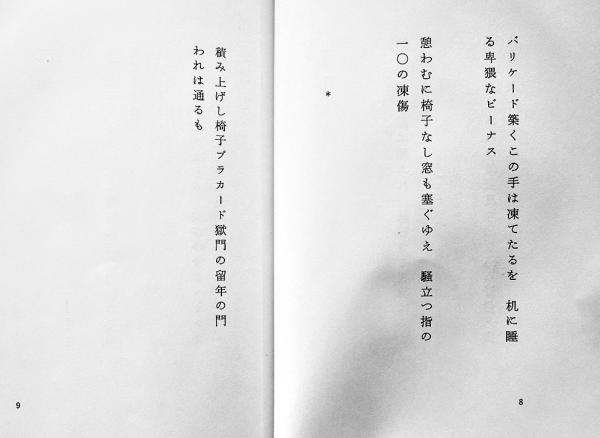 バリケード築くこの手は凍てたるを　机に睡
る卑猥なビーナス
憩わむに椅子なし窓も塞ぐゆえ　騒立つ指の
一〇の凍傷
*
8
積み上げし椅子プラカード獄門の留年の門
われは通るも
9